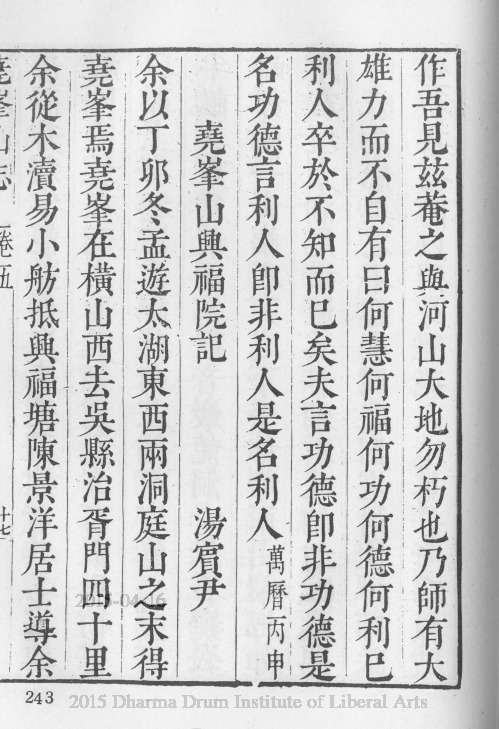 作吾見茲菴之與河山大地勿朽也乃師有大
雄力而不自有曰何慧何福何功何德何利已
利人卒於不知而已矣夫言功德卽非功德是
名功德言利人卽非利人是名利人 萬曆丙申
堯峯山興福院記 湯賓尹
余以丁卯冬孟遊太湖東西兩洞庭山之末得
堯峯焉堯峯在橫山西去吳縣治胥門四十里
余從木瀆易小舫抵興福塘陳景洋居士導余
堯峯山志 卷五 十七
243
2015 Dharma Drum Institute of Liberal Arts